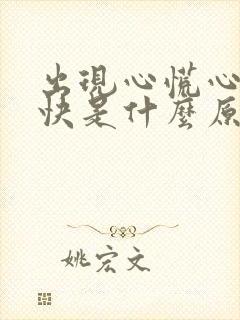 出現心慌心
快是什麼原
姚宏文